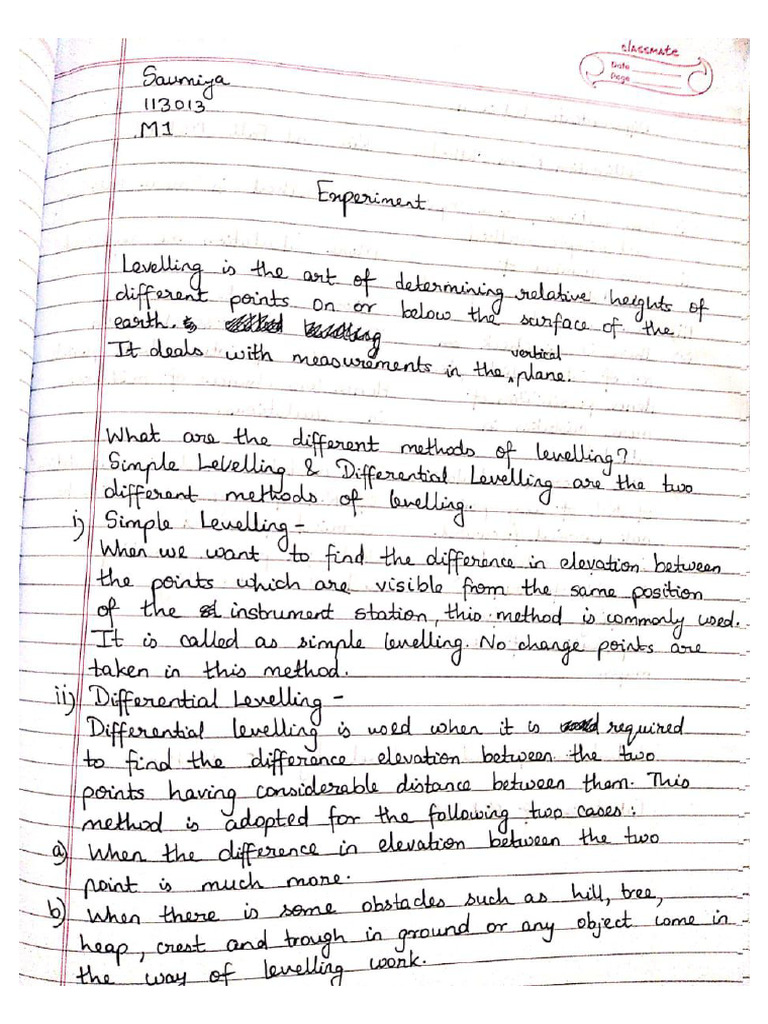 classmate
Date
Page
Saumiya
113013
M1
Experiment
Levelling is the art of determining relative heights of
different points on or below the surface of the
earth.
It deals with measurements in the vertical plane.
What are the different methods of levelling?
Simple Levelling & Differential Levelling are the two
different methods of levelling.
i) Simple Levelling -
When we want to find the difference in elevation between
the points which are visible from the same position
of the instrument station, this method is commonly used.
It is called as simple levelling. No change points are
taken in this method.
ii) Differential Levelling -
Differential levelling is used when it is required
to find the difference elevation between the two
points having considerable distance between them. This
method is adopted for the following two cases:
a) When the difference in elevation between the two
point is much more.
b) When there is some obstacles such as hill, tree,
heap, crest and trough in ground or any object come in
the way of levelling work.